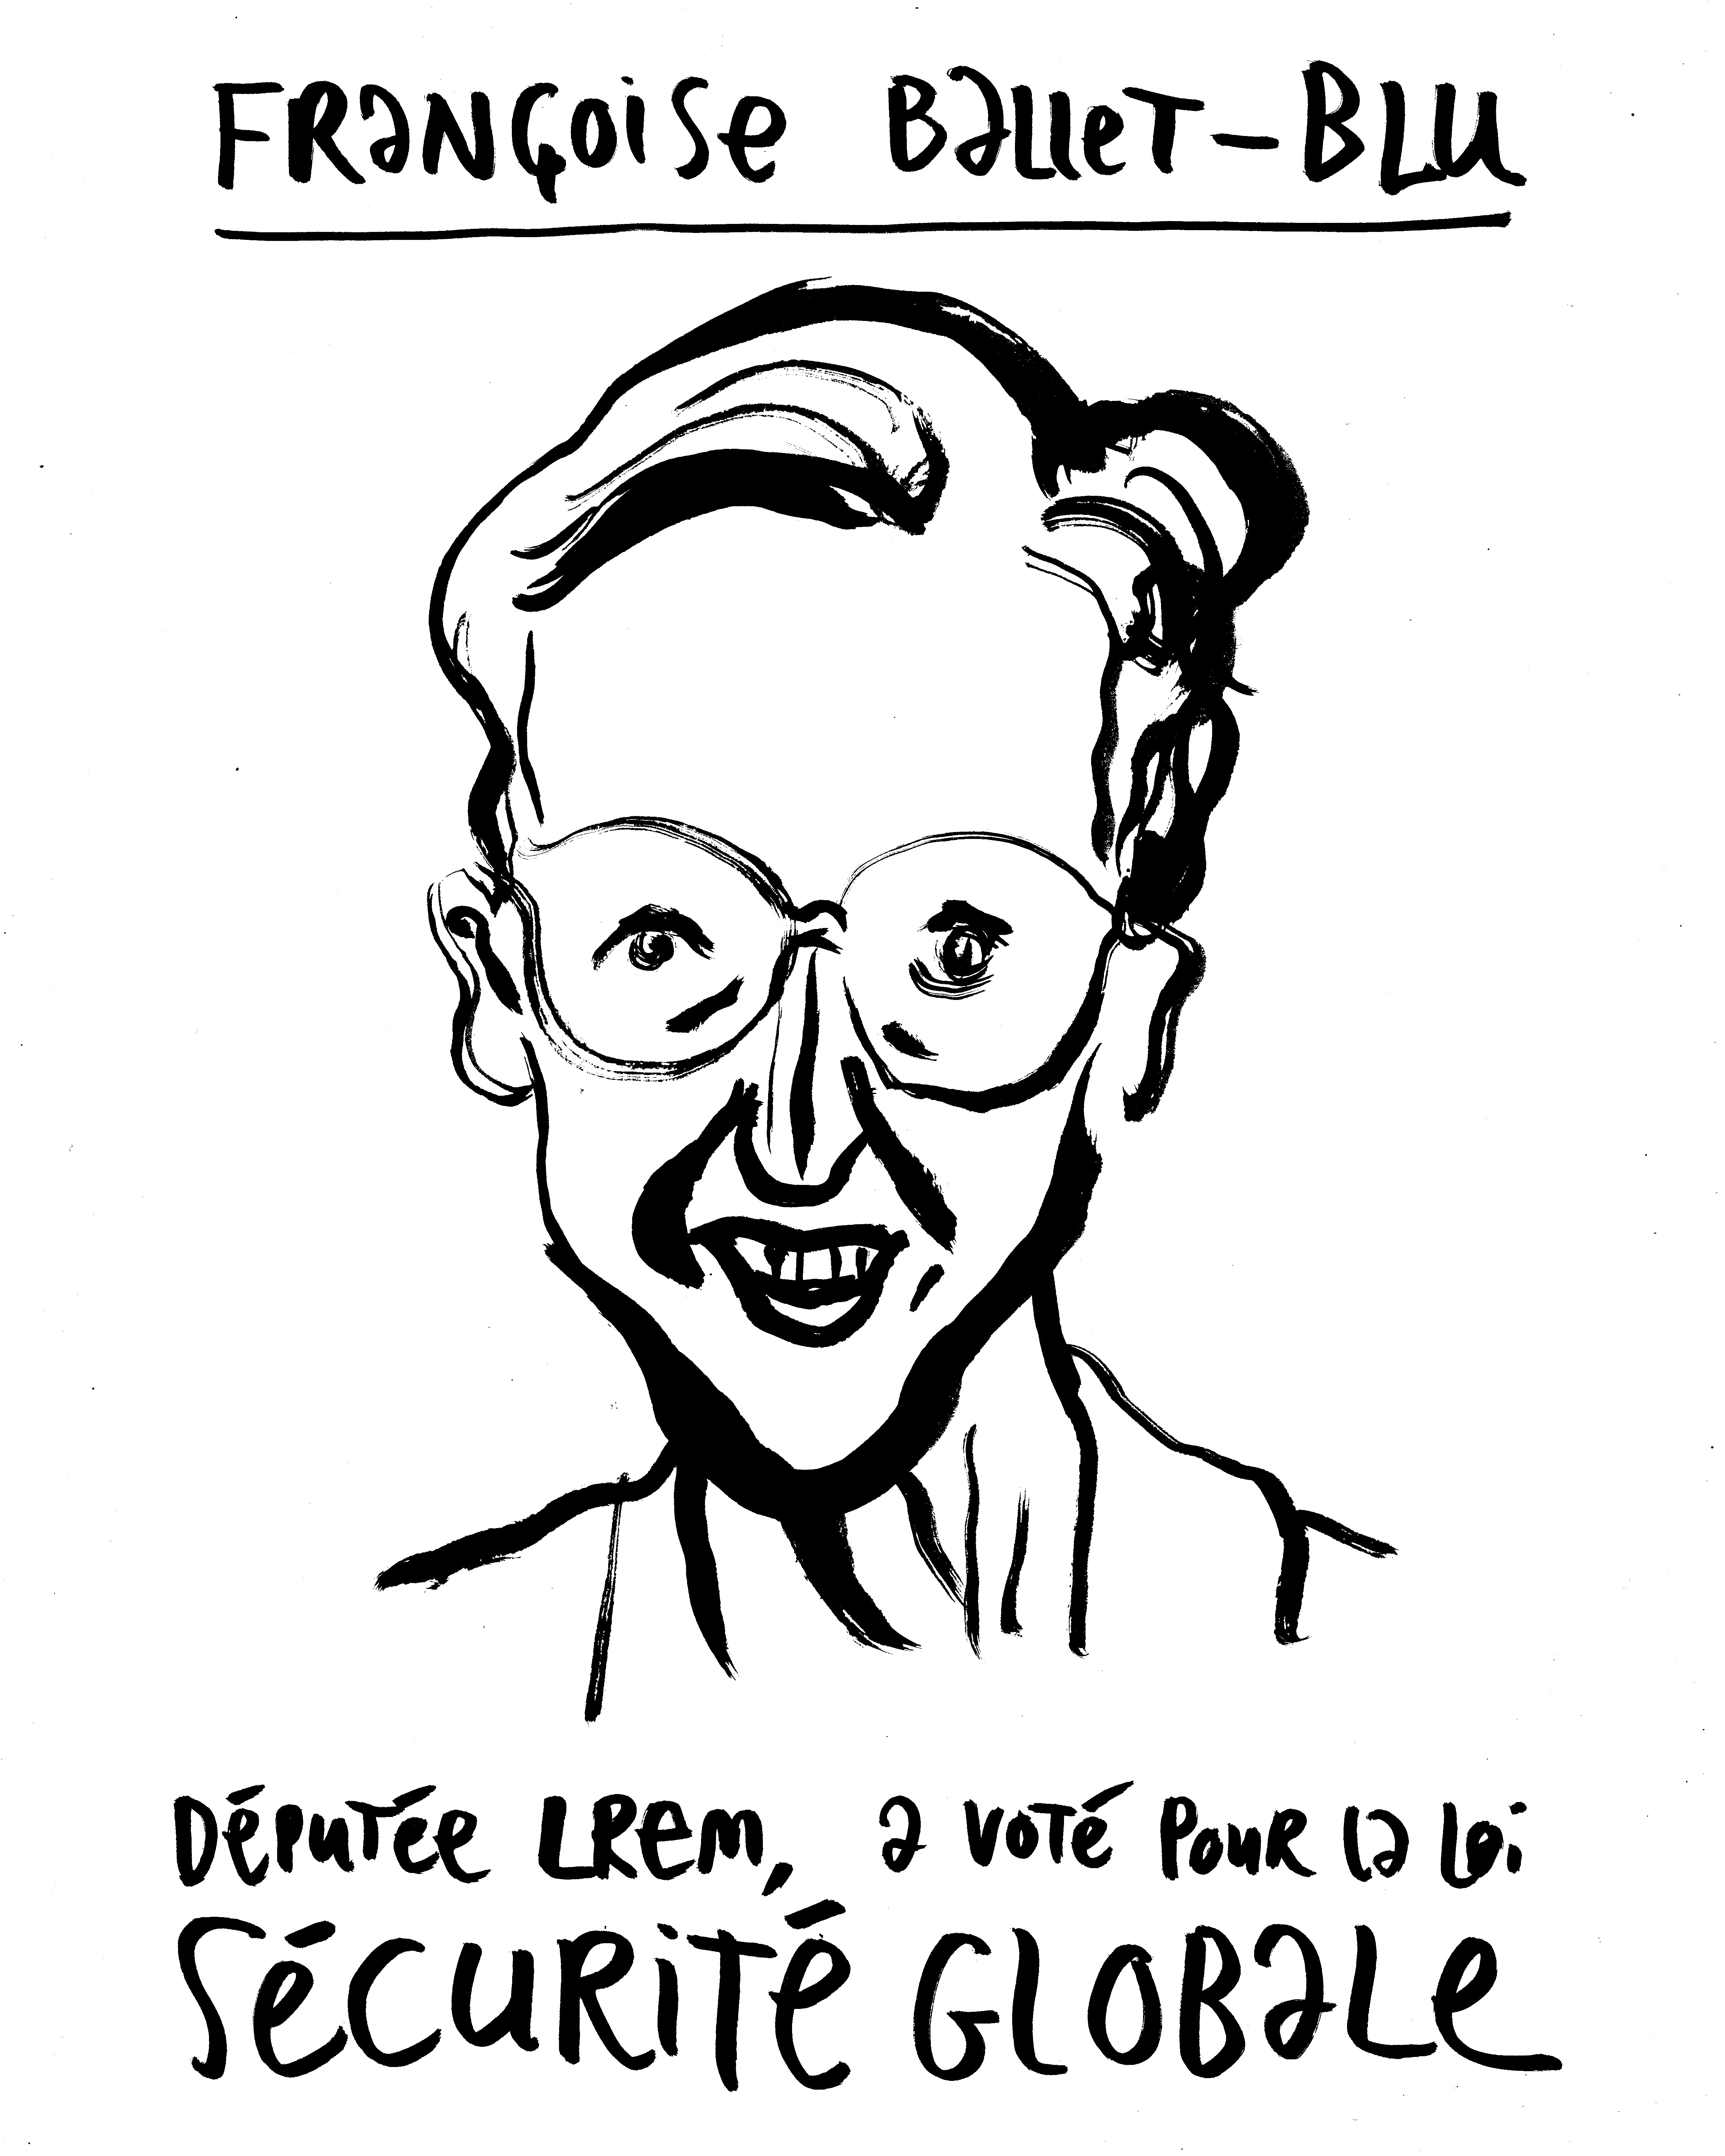 Françoise Ballet-Blu
Députée LREM, a voté pour la loi
Sécurité Globale